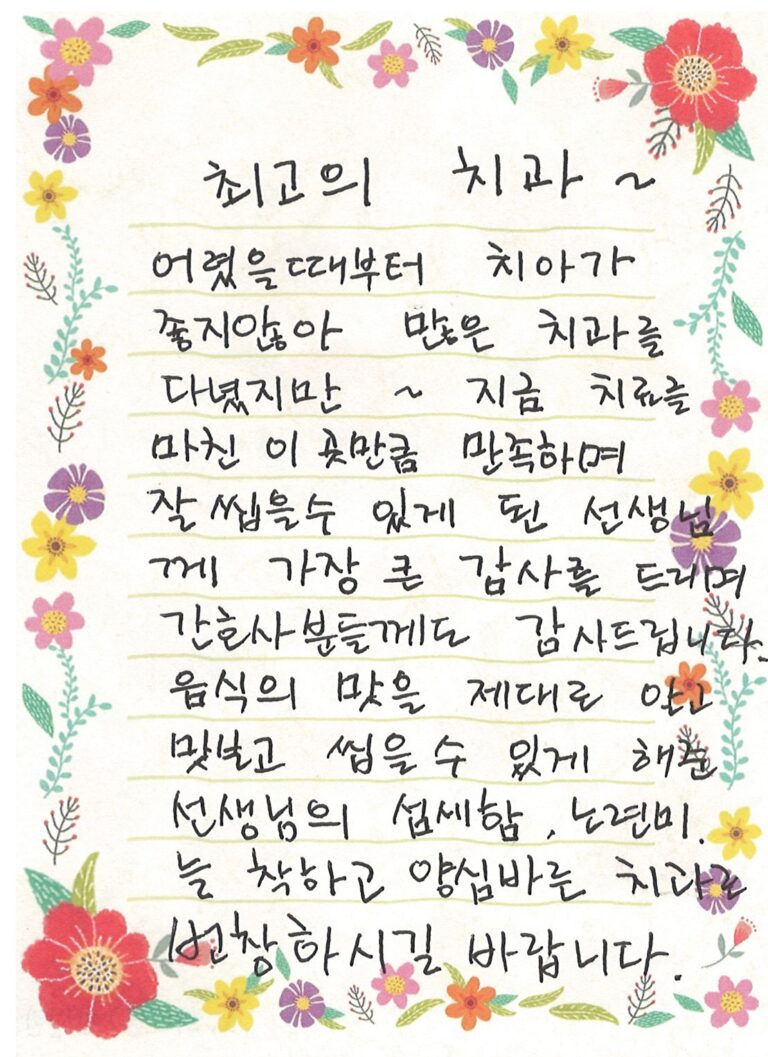 최고의 치과 ~
어렸을때부터 치아가
좋지않아 많은 치과를
다녔지만 ~ 지금 치료를
마친 이 곳만큼 만족하며
잘 씹을수 있게 된 선생님
께 가장 큰 감사를 드리며
간호사분들께도 감사드립니다.
음식의 맛을 제대로 알고
맛보고 씹을 수 있게 해준
선생님의 섬세함, 노련미.
늘 착하고 양심바른 치과로
번창하시길 바랍니다.